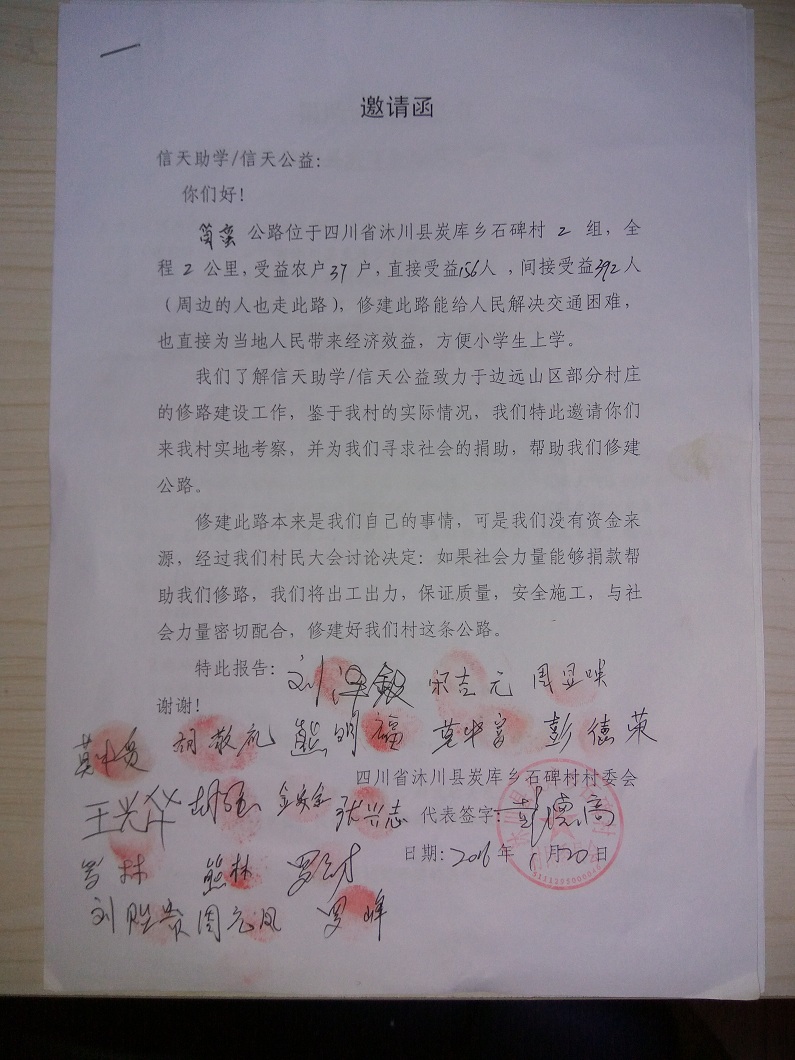 邀请函
信天助学/信天公益：
你们好！
公路位于四川省沐川县炭库乡石碑村 2 组，全
程 2 公里，受益农户37户，直接受益156人，间接受益392人
（周边的人也走此路），修建此路能给人民解决交通困难，
也直接为当地人民带来经济效益，方便小学生上学。
我们了解信天助学/信天公益致力于边远山区部分村庄
的修路建设工作，鉴于我村的实际情况，我们特此邀请你们
来我村实地考察，并为我们寻求社会的捐助，帮助我们修建
公路。
修建此路本来是我们自己的事情，可是我们没有资金来
源，经过我们村民大会讨论决定：如果社会力量能够捐款帮
助我们修路，我们将出工出力，保证质量，安全施工，与社
会力量密切配合，修建好我们村这条公路。
特此报告： 宋吉元
谢谢！
熊明福 彭德英
四川省沐川县炭库乡石碑村村委会
王兴华 张兴志 代表签字：彭德高
日期：2016年1月20日
熊林
周元凤 罗峰